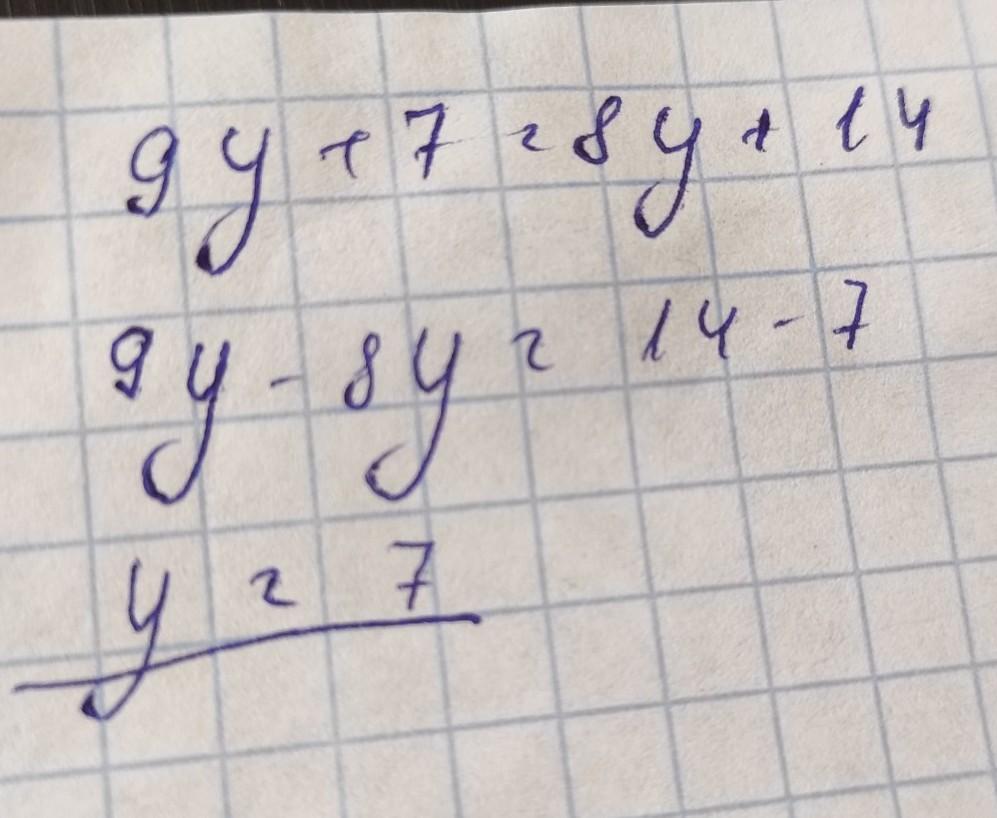 9y + 7 = 8y + 14
9y - 8y = 14 - 7
y = 7